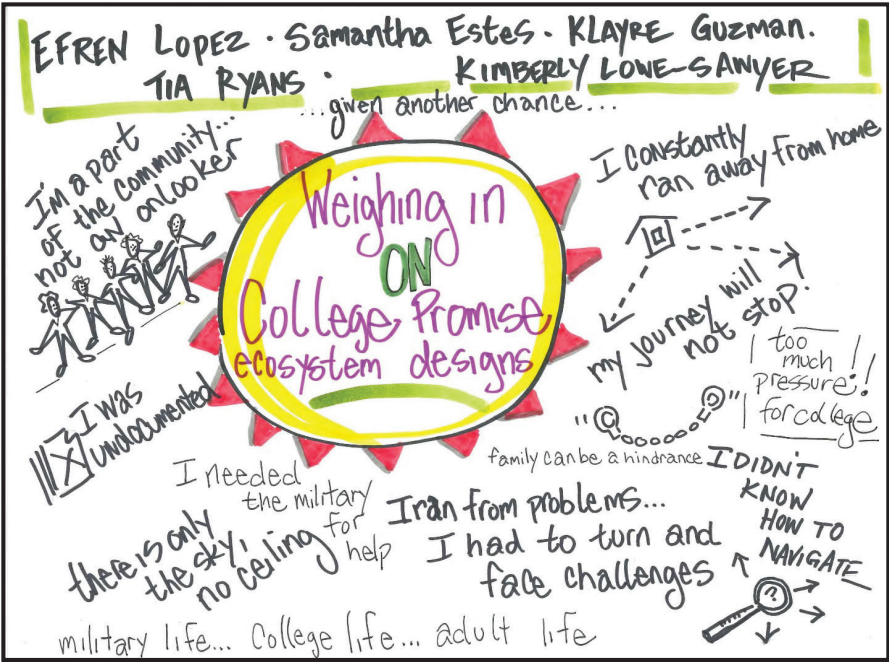 EFREN LOPEZ · Samantha Estes · KLAYRE Guzman.
TIA RYANS · KIMBERLY LOWE-SAWYER
...given another chance...
I'm a part
of the community...
not an onlooker
Weighing in
ON
College Promise
ecosystem designs
I constantly
ran away from home
my journey will
not stop!
too
much
pressure!!
for college
I was
undocumented
" "
family can be a hindrance
I needed
the military
for
help
there is only
the sky,
no ceiling
I ran from problems...
I had to turn and
face challenges
I DIDN'T
KNOW
HOW TO
NAVIGATE
?
military life... College life... adult life